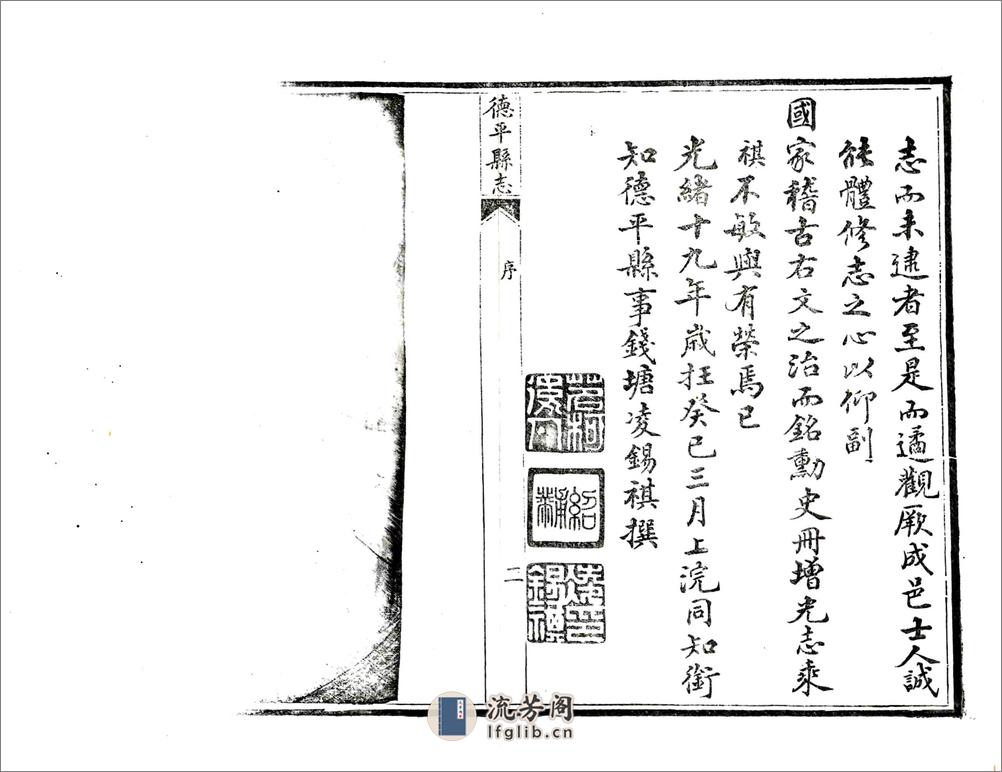 志而未逮者至是而遹觀厥成邑士人誠
能體修志之心以仰副
國家稽古右文之治而銘勳史冊增光志乘
祺不敏與有榮焉已
光緒十九年歲在癸巳三月上浣同知銜
知德平縣事錢塘凌錫祺撰
紹黼
凌印
錫祺
德平縣志
序
二
流芳阁
lfglib.cn